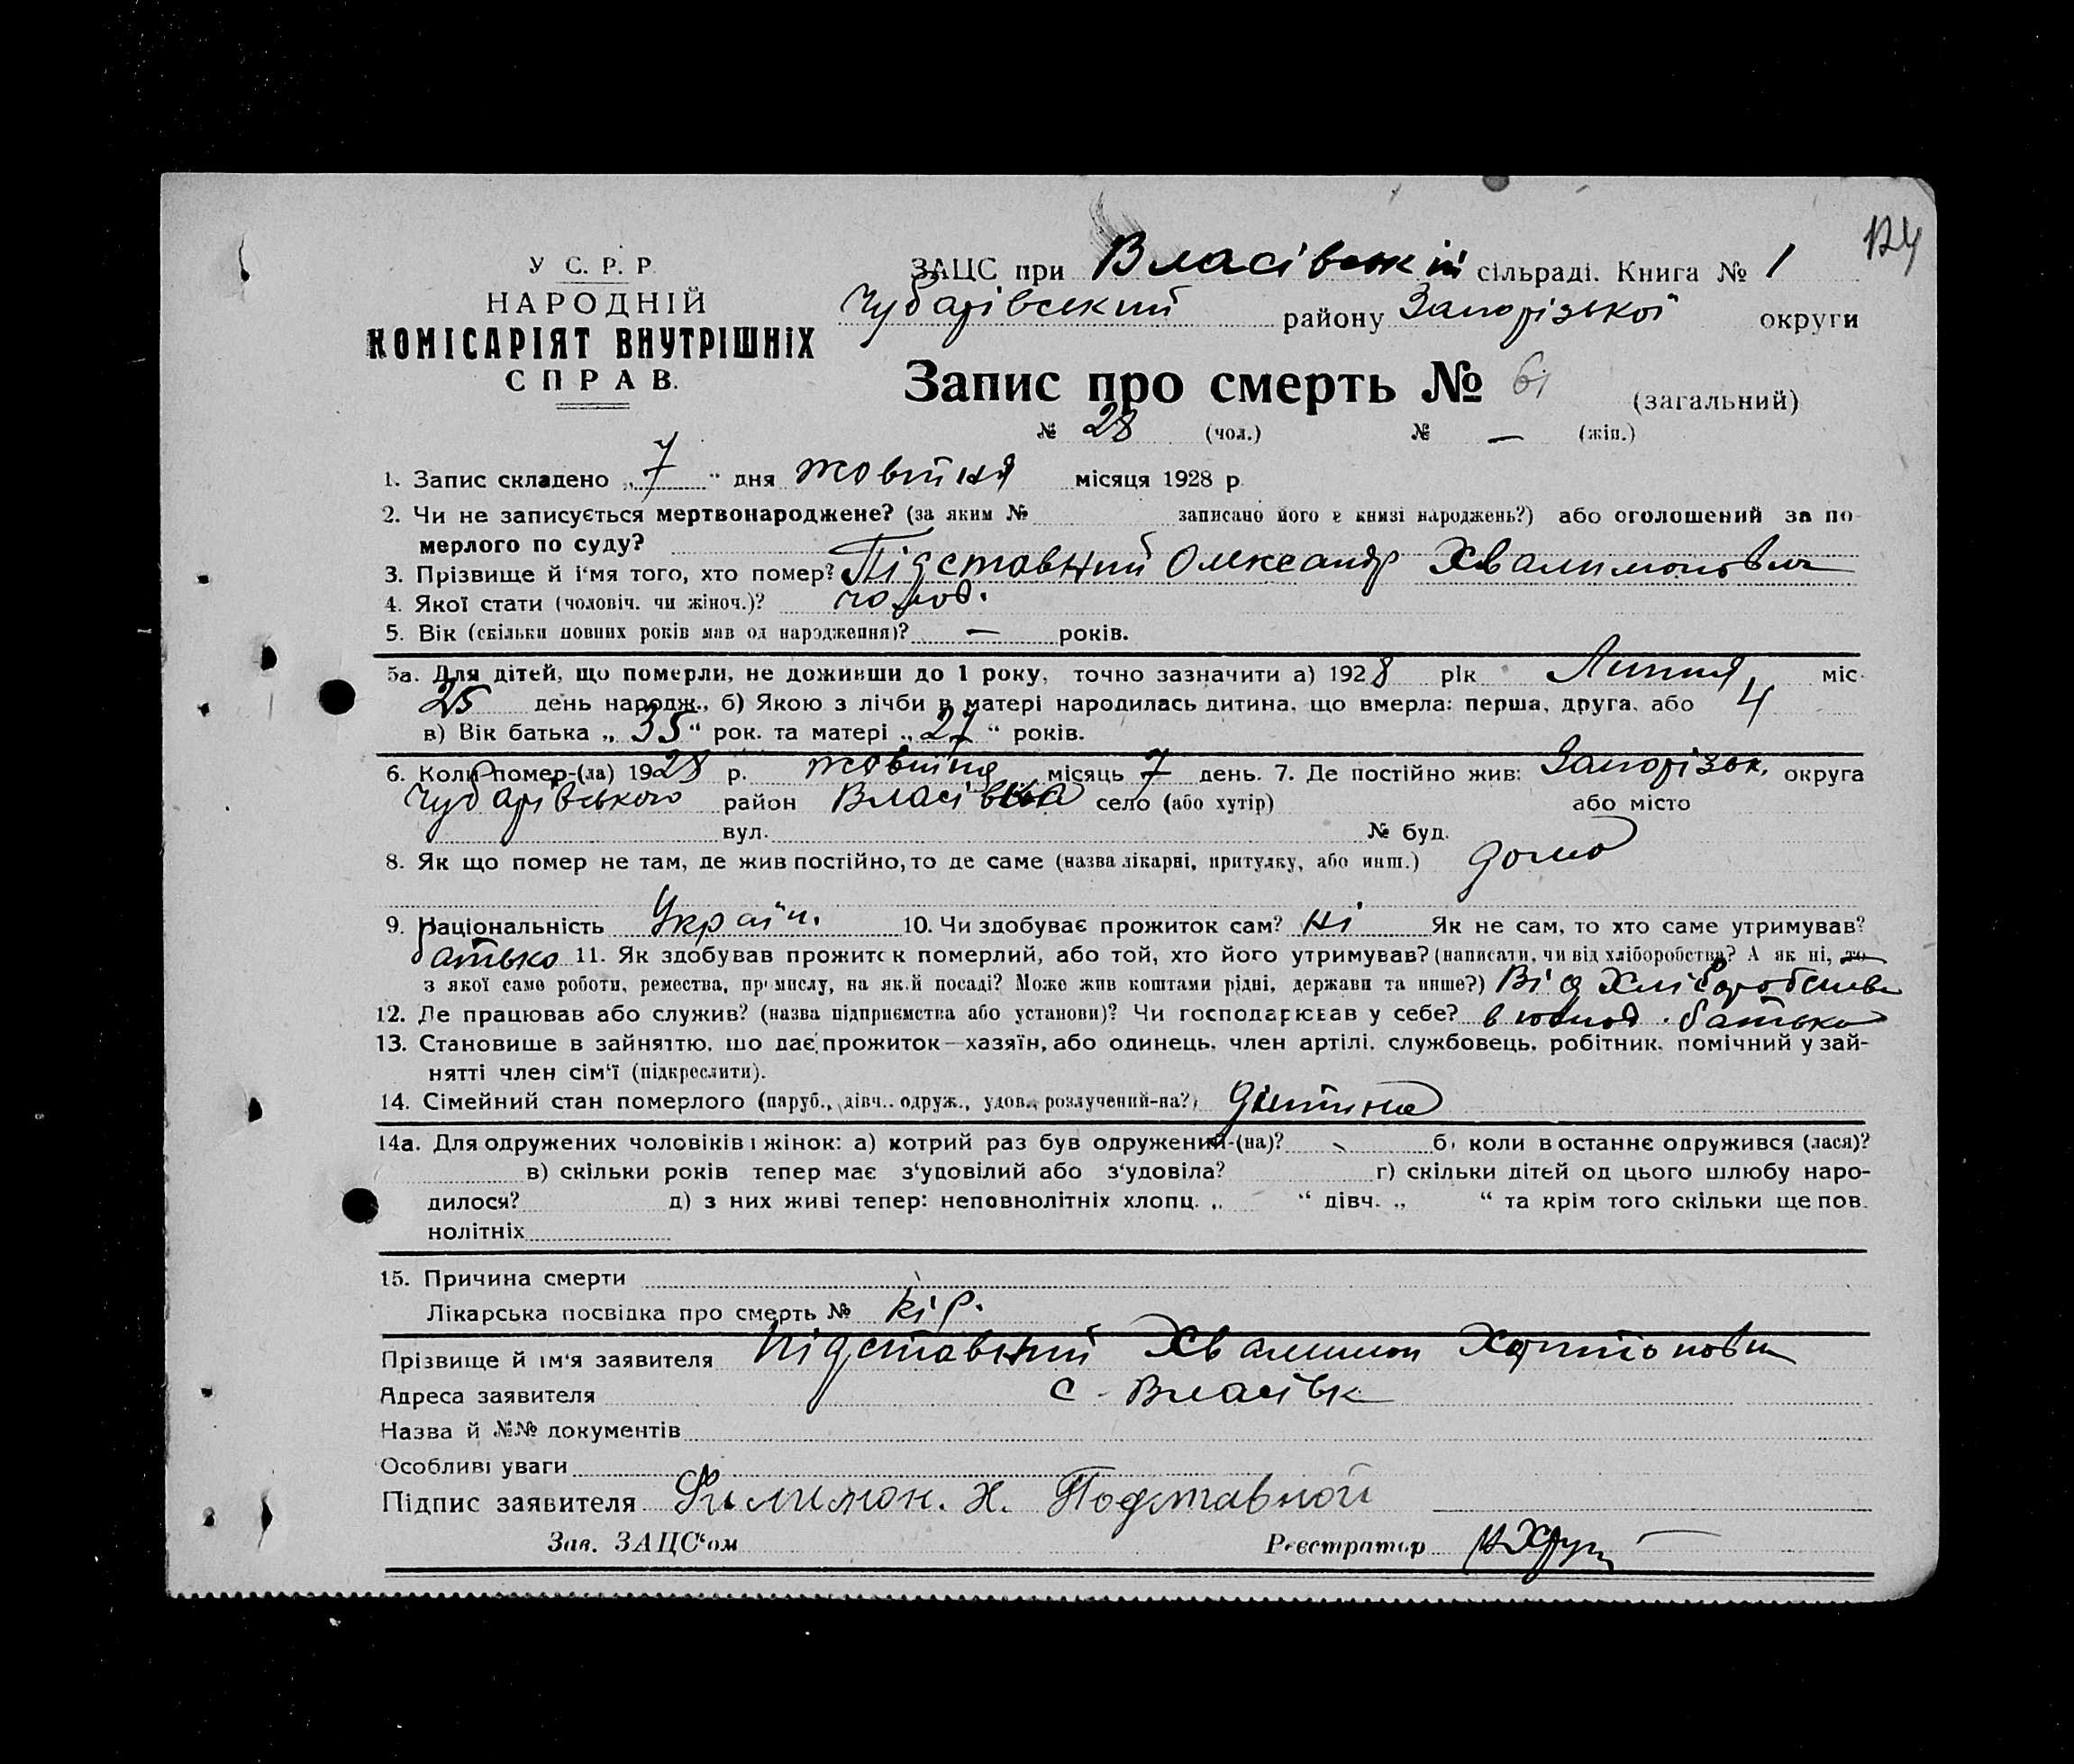 124
У С. Р. Р.
НАРОДНІЙ
КОМІСАРІЯТ ВНУТРІШНІХ
СПРАВ.
ЗАЦС при Власівській сільраді. Книга № 1
Чубарівський району Запорізької округи
Запис про смерть № 61 (загальний)
№ 28 (чол.) № — (жін.)
1. Запис складено „ 7 “ дня жовтня місяця 1928 р.
2. Чи не записується мертвонароджене? (за яким № записано його в книзі народжень?) або оголошений за по-
мерлого по суду?
3. Прізвище й і'мя того, хто помер? Підставний Олександр Хвалимонович
4. Якої стати (чоловіч. чи жіноч.)?
5. Вік (скільки повних років мав од народження)? — років.
5а. Для дітей, що померли, не доживши до 1 року, точно зазначити а) 1928 рік Липня міс.
25 день народж., б) Якою з лічби в матері народилась дитина, що вмерла: перша, друга, або 4
в) Вік батька „ 35 “ рок. та матері „ 27 “ років.
6. Коли помер-(ла) 1928 р. жовтня місяць 7 день. 7. Де постійно жив: Запорізьк. округа
Чубарівського район Власівка село (або хутір) або місто
вул. № буд.
8. Як що помер не там, де жив постійно, то де саме (назва лікарні, притулку, або инш.) дома
9. Національність Україн. 10. Чи здобуває прожиток сам? Ні Як не сам, то хто саме утримував?
батько 11. Як здобував прожиток померлий, або той, хто його утримував? (написати, чи від хліборобства? А як ні, то
з якої саме роботи, ремества, промислу, на якій посаді? Може жив коштами рідні, держави та инше?) Від Хліборобства
12. Де працював або служив? (назва підприємства або установи)? Чи господарював у себе? в господ. батька
13. Становище в зайняттю, що дає прожиток—хазяїн, або одинець, член артілі, службовець, робітник, помічний у зай-
нятті член сім'ї (підкреслити).
14. Сімейний стан померлого (паруб., дівч., одруж., удов., розлучений-на?) дитина
14а. Для одружених чоловіків і жінок: а) котрий раз був одружений-(на)? б) коли в останнє одружився (лася)?
в) скільки років тепер має з'удовілий або з'удовіла? г) скільки дітей од цього шлюбу наро-
дилося? д) з них живі тепер: неповнолітніх хлопц. „ “ дівч. „ “ та крім того скільки ще пов.
нолітніх
15. Причина смерти
Лікарська посвідка про смерть № кір.
Прізвище й ім'я заявителя Підставний Хвалимон Харитонович
Адреса заявителя с. Власівк
Назва й №№ документів
Особливі уваги
Підпис заявителя Филимон. Х. Подставной
Зав. ЗАЦС'ом Реєстратор